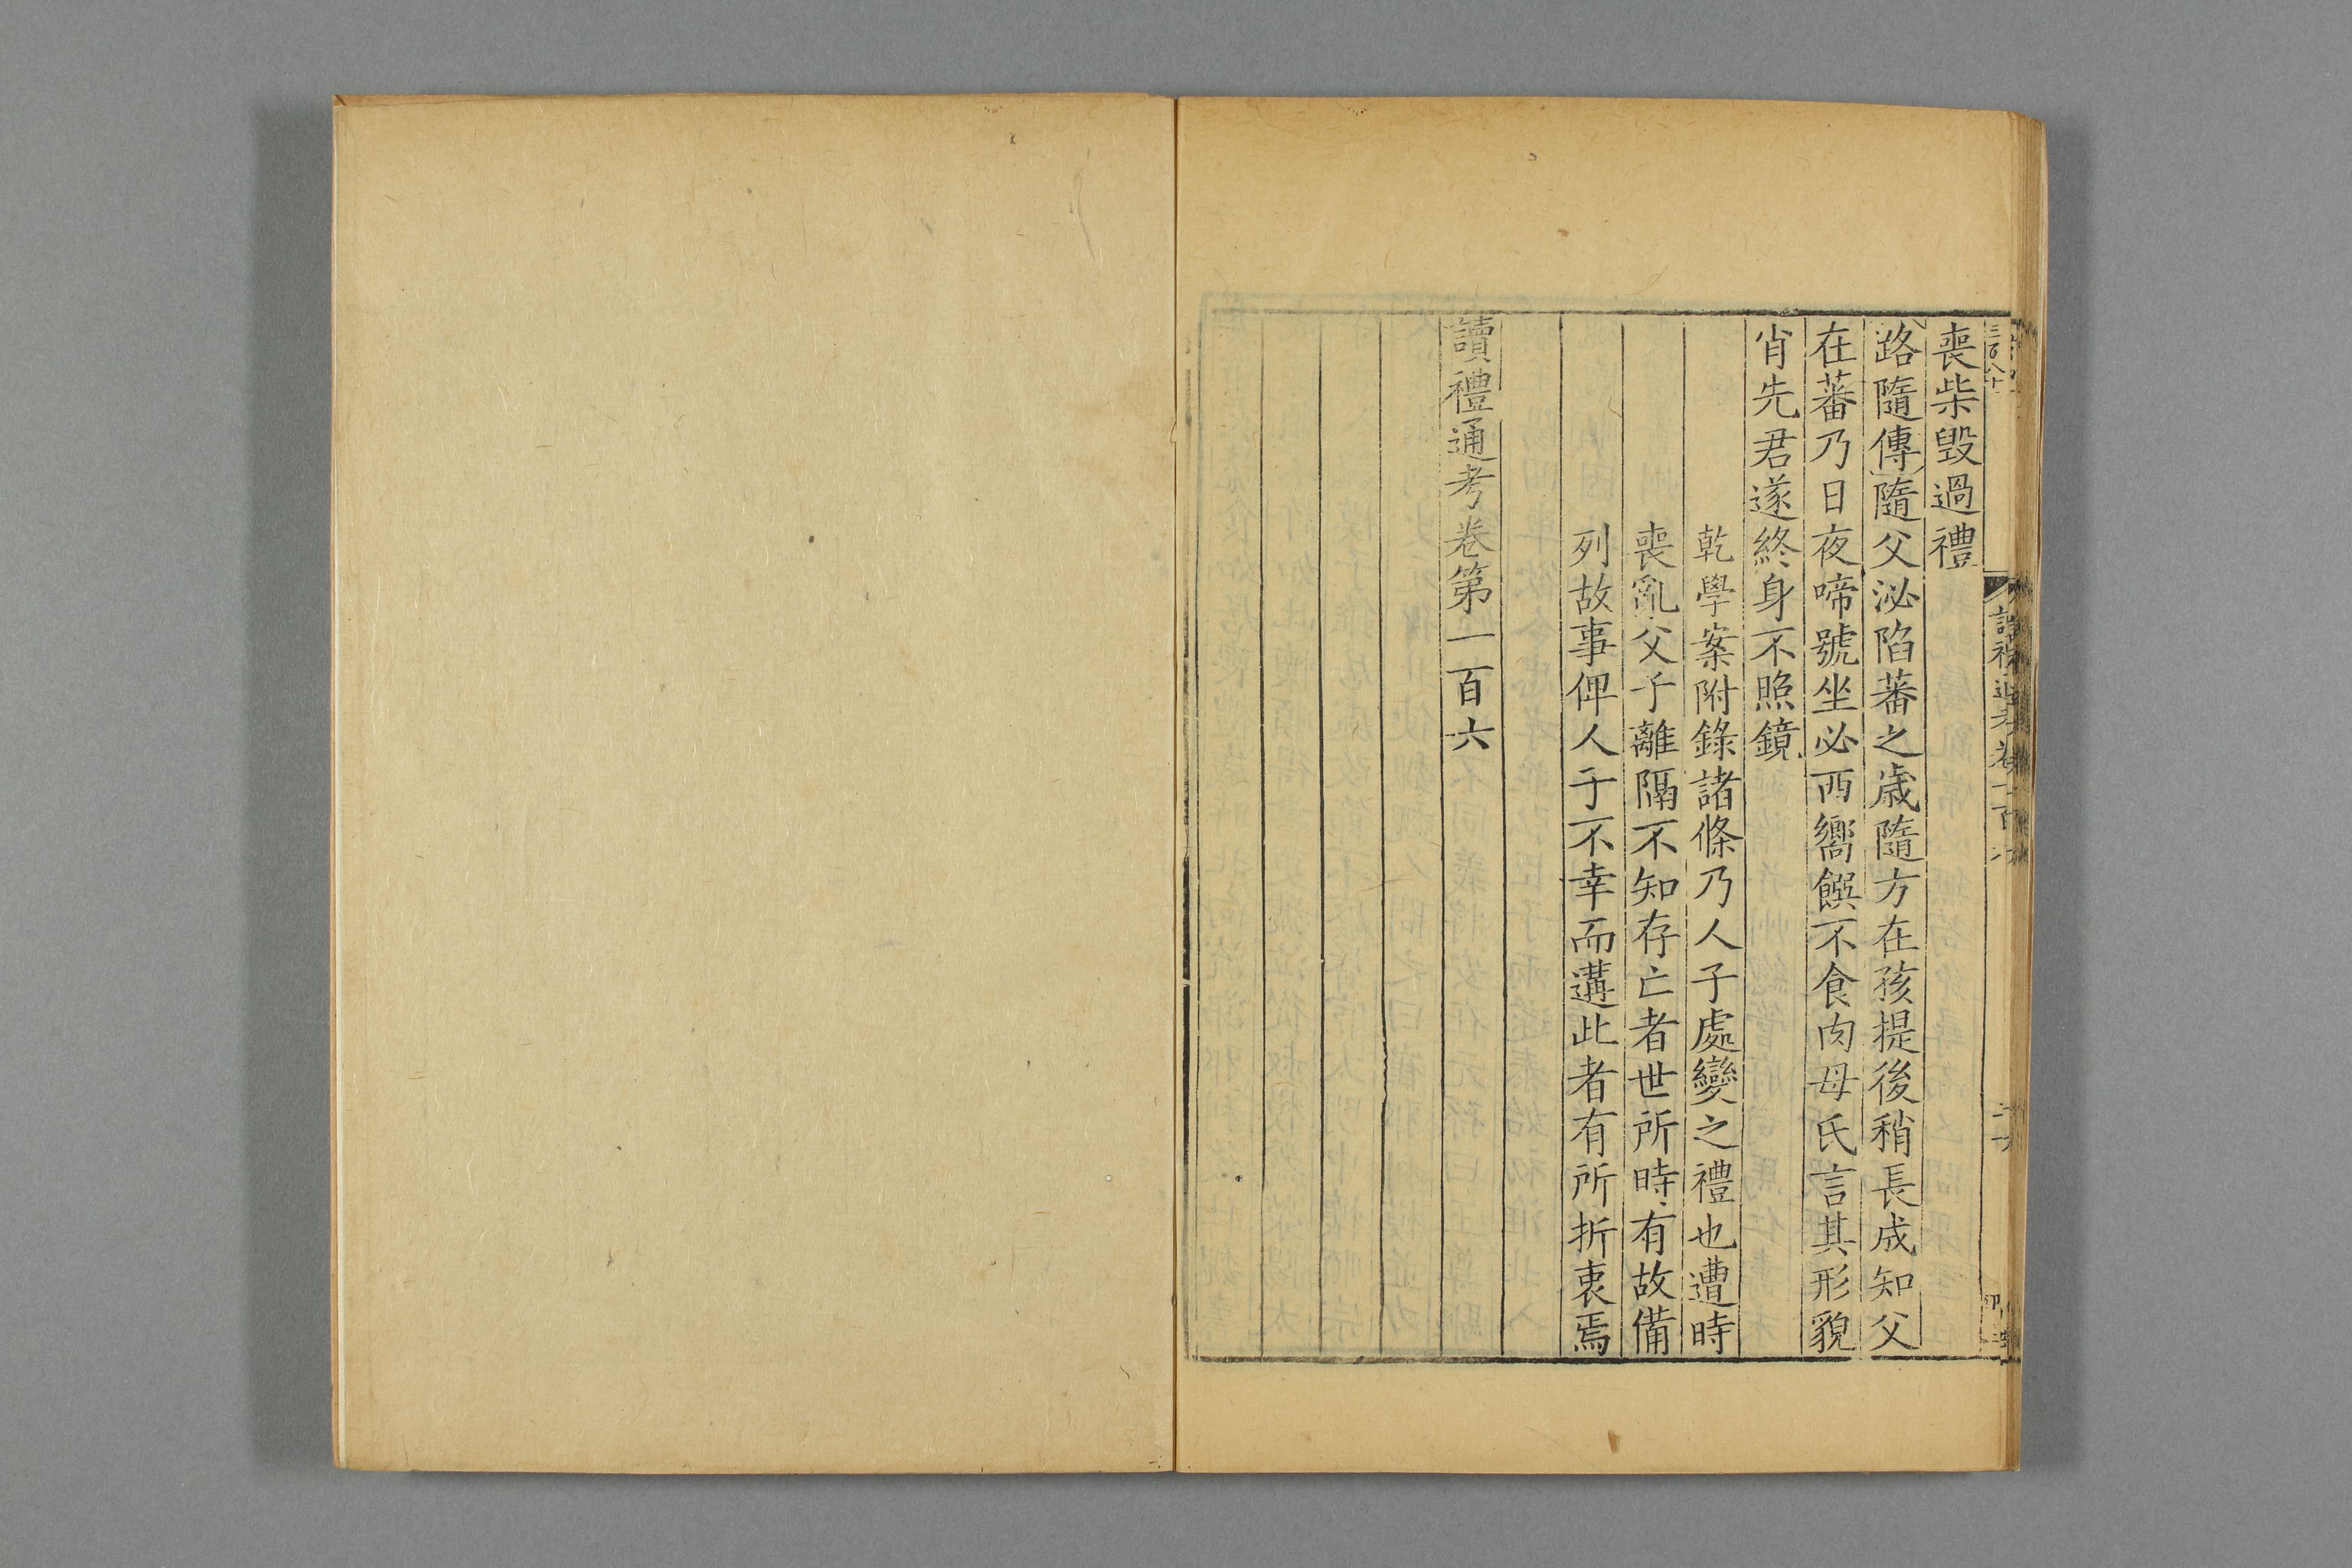 喪柴毀過禮
路隨傳隨父泌陷蕃之歲隨方在孩提後稍長成知父
在蕃乃日夜啼號坐必西嚮饌不食肉母氏言其形貌
肖先君遂終身不照鏡
乾學案附錄諸條乃人子處變之禮也遭時
喪亂父子離隔不知存亡者世所時有故備
列故事俾人于不幸而遘此者有所折衷焉
讀禮通考卷第一百六